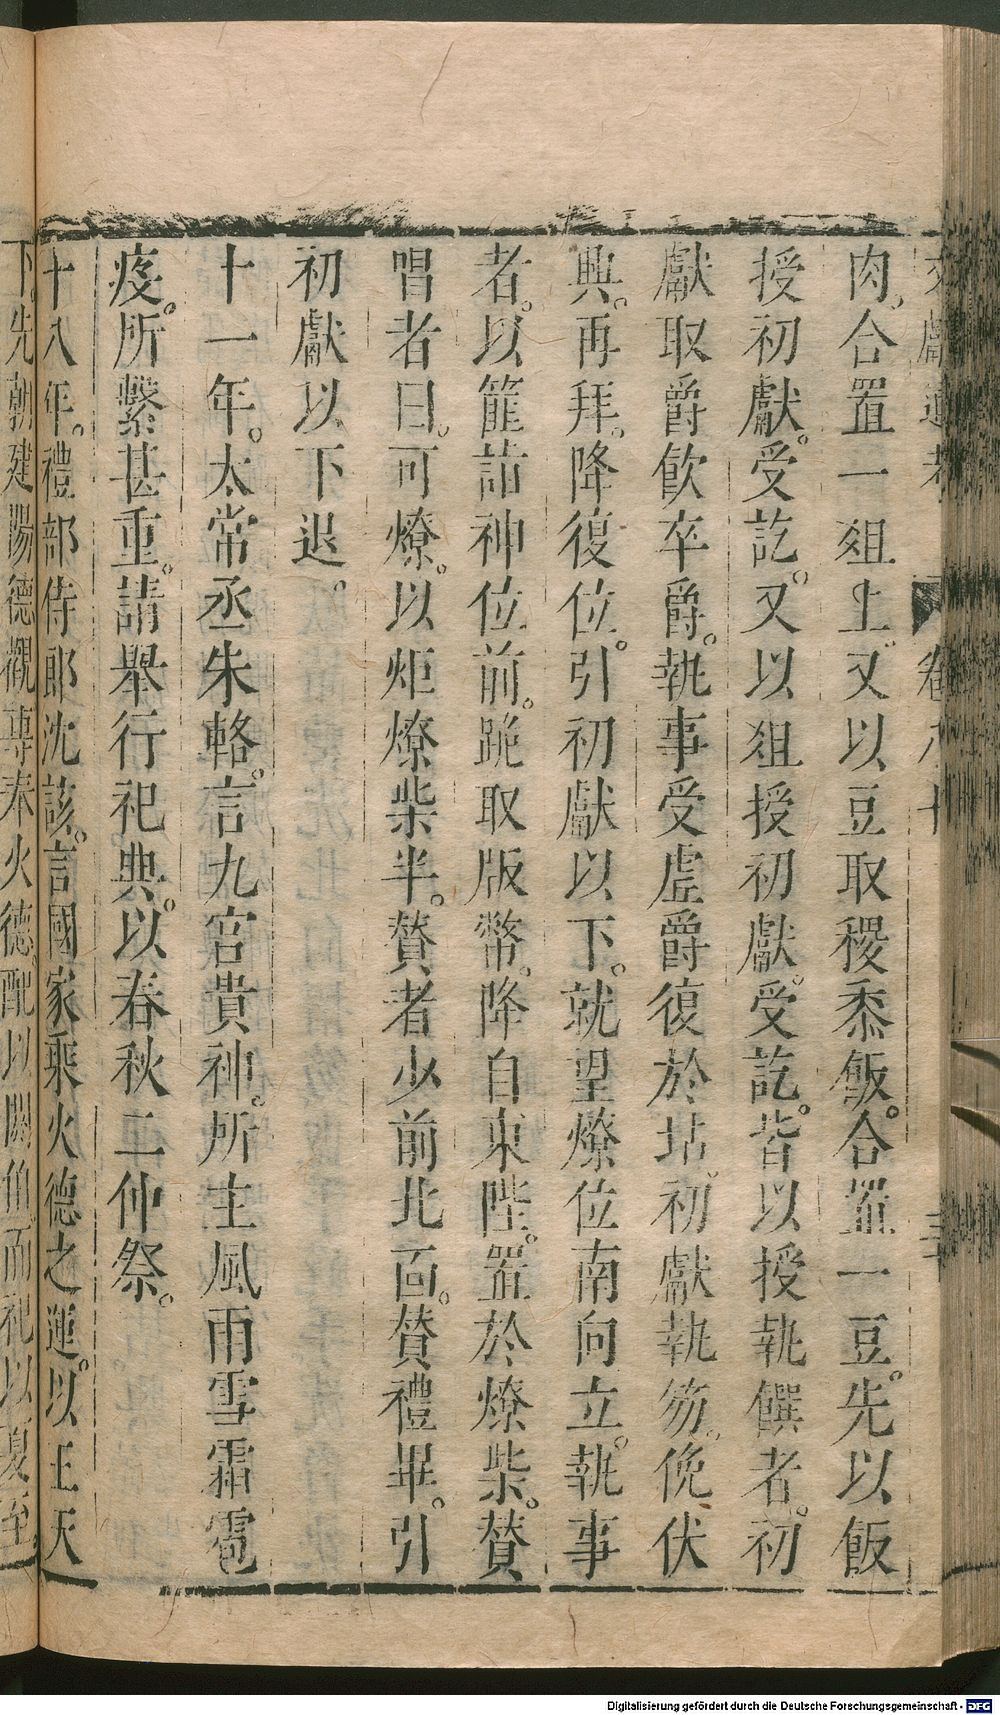 文獻通考 卷八十
肉。合置一俎上。又以豆取稷黍飯。合置一豆。先以飯
授初獻。受訖。又以俎授初獻。受訖。皆以授執饌者。初
獻取爵飲卒爵。執事受虛爵復於坫。初獻執笏。俛伏
興。再拜。降復位。引初獻以下。就望燎位南向立。執事
者。以篚詣神位前。跪取版幣。降自東陛。置於燎柴。贊
唱者曰。可燎。以炬燎柴半。贊者少前北面。贊禮畢。引
初獻以下退。
十一年。太常丞朱輅。言九宮貴神。所主風雨雪霜雹
疫。所繫甚重。請舉行祀典。以春秋二仲祭。
十八年。禮部侍郎沈該。言國家乘火德之運。以王天
下。先朝建陽德觀專奉火德。配以閼伯。而祀以夏至
Digitalisierung gefördert durch die Deutsche Forschungsgemeinschaft - DFG